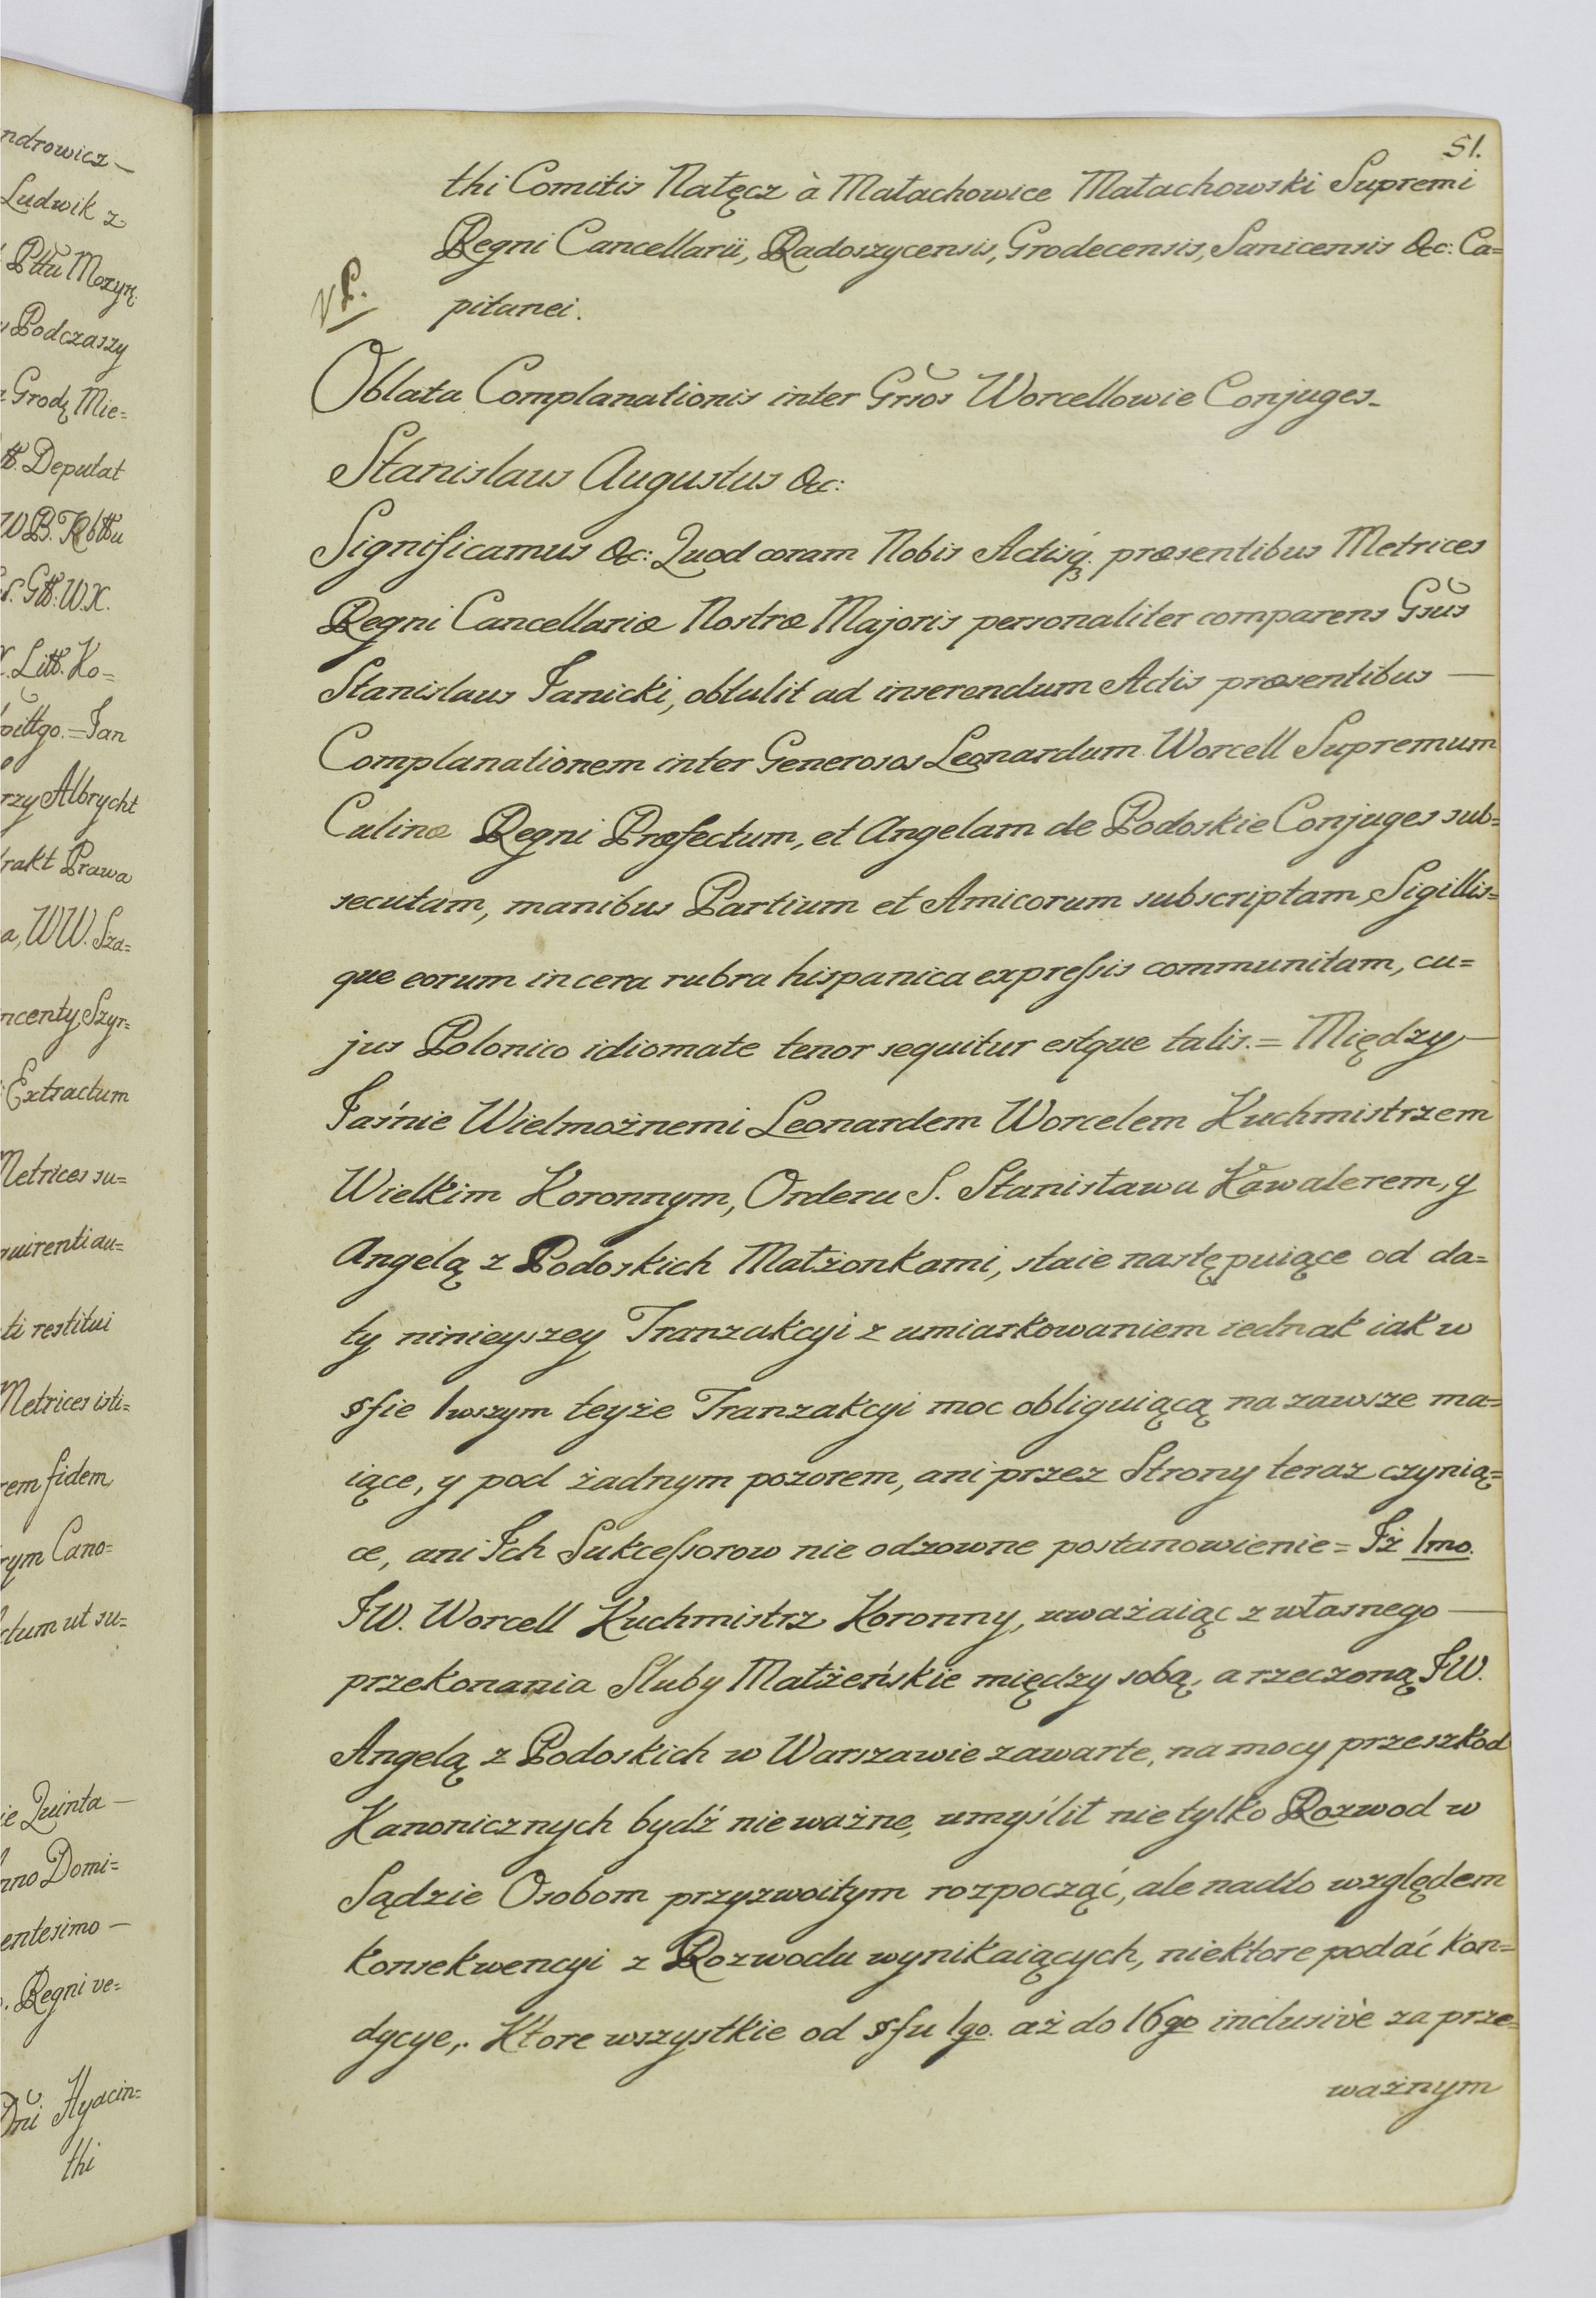 ndrowicz —
Ludwik z
Pttu Mozyr.
Podczaszy
Grodz Mie=
Deputat
Extractum
Metrices su=
quirenti au=
ti restitui
Metrices isti=
rem fidem
rym Cano=
ctum ut su=
ie Quinta —
nno Domi=
entesimo —
Regni ve=
Dni Hyacin=
thi
51.
thi Comitis Nałęcz à Małachowice Małachowski Supremi
Regni Cancellarii, Radoszycensis, Grodecensis, Sanicensis &c: Ca=
pitanei.
Oblata Complanationis inter Grsos Worcellowie Conjuges.
Stanislaus Augustus &c:
Significamus &c: Quod coram Nobis Actisq; præsentibus Metrices
Regni Cancellariæ Nostræ Majoris personaliter comparens Gsus
Stanislaus Janicki, obtulit ad inserendum Actis præsentibus —
Complanationem inter Generosos Leonardum Worcell Supremum
Culinæ Regni Præfectum, et Angelam de Podoskie Conjuges sub=
secutam, manibus Partium et Amicorum subscriptam, Sigillis=
que eorum in cera rubra hispanica expressis communitam, cu=
jus Polonico idiomate tenor sequitur estque talis. = Między —
Jaśnie Wielmożnemi Leonardem Worcelem Kuchmistrzem
Wielkim Koronnym, Orderu S. Stanisława Kawalerem, y
Angelą z Podoskich Małżonkami, staie następuiące od da=
ty ninieyszey Tranzakcyi z umiarkowaniem iednak iak w
§fie 1wszym teyże Tranzakcyi moc obliguiącą na zawsze ma=
iące, y pod żadnym pozorem, ani przez Strony teraz czynią=
ce, ani Ich Sukcessorow nie odzowne postanowienie = Iż 1mo.
JW. Worcell Kuchmistrz Koronny, uważaiąc z własnego —
przekonania Sluby Małżeńskie między sobą, a rzeczoną JW.
Angelą z Podoskich w Warszawie zawarte, na mocy przeszkod
Kanonicznych bydź nie ważne, umyślił nie tylko Rozwod w
Sądzie Osobom przyzwoitym rozpocząć, ale nadto względem
konsekwencyi z Rozwodu wynikaiących, niektore podać kon=
dycye,. Ktore wszystkie od §fu 1go. aż do 16go inclusivè za prze=
ważnym